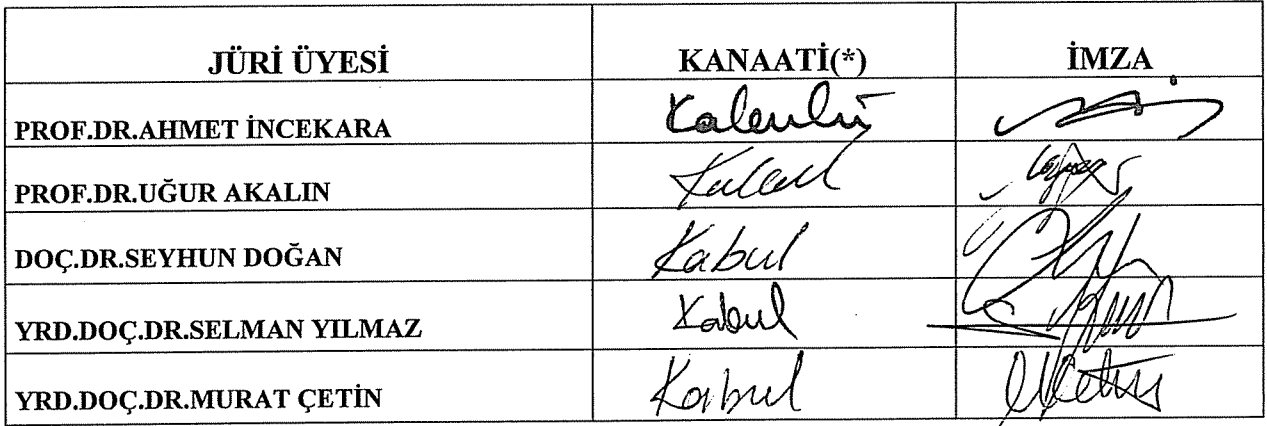 JÜRİ ÜYESİ KANAATİ(*) İMZA
PROF.DR.AHMET İNCEKARA
PROF.DR.UĞUR AKALIN
DOÇ.DR.SEYHUN DOĞAN Kabul
YRD.DOÇ.DR.SELMAN YILMAZ Kabul
YRD.DOÇ.DR.MURAT ÇETİN Kabul